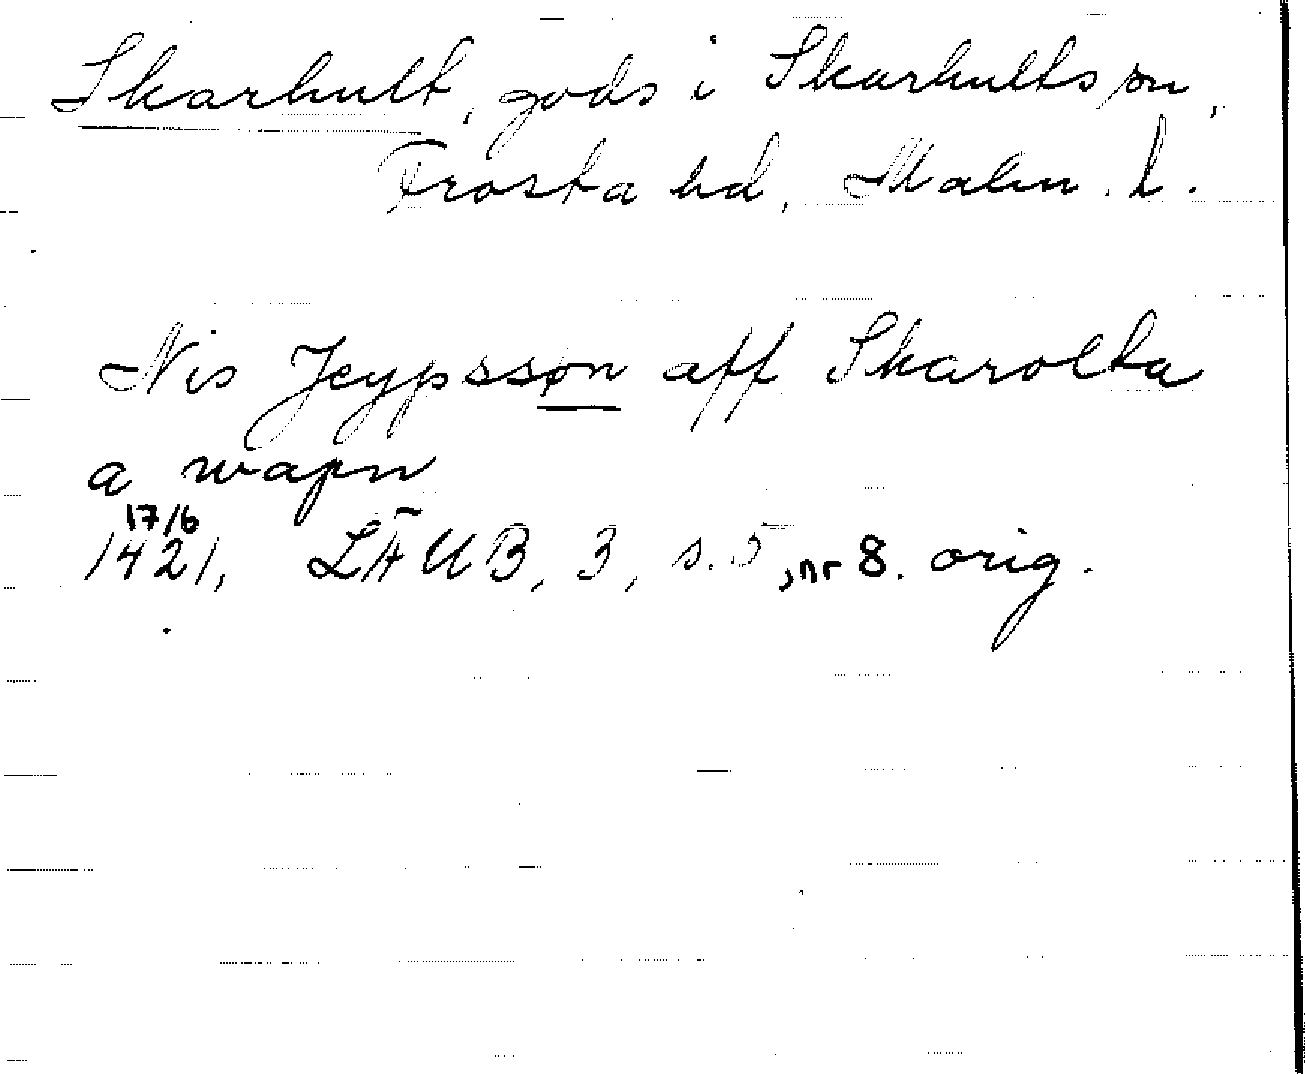 Skarhult, gods i Skarhults sn,
Frosta hd, Malm. l.
Nis Jeypssøn aff Skarolta
a wapn
17/6
1421, LÄUB, 3, s. 5, nr 8. orig.